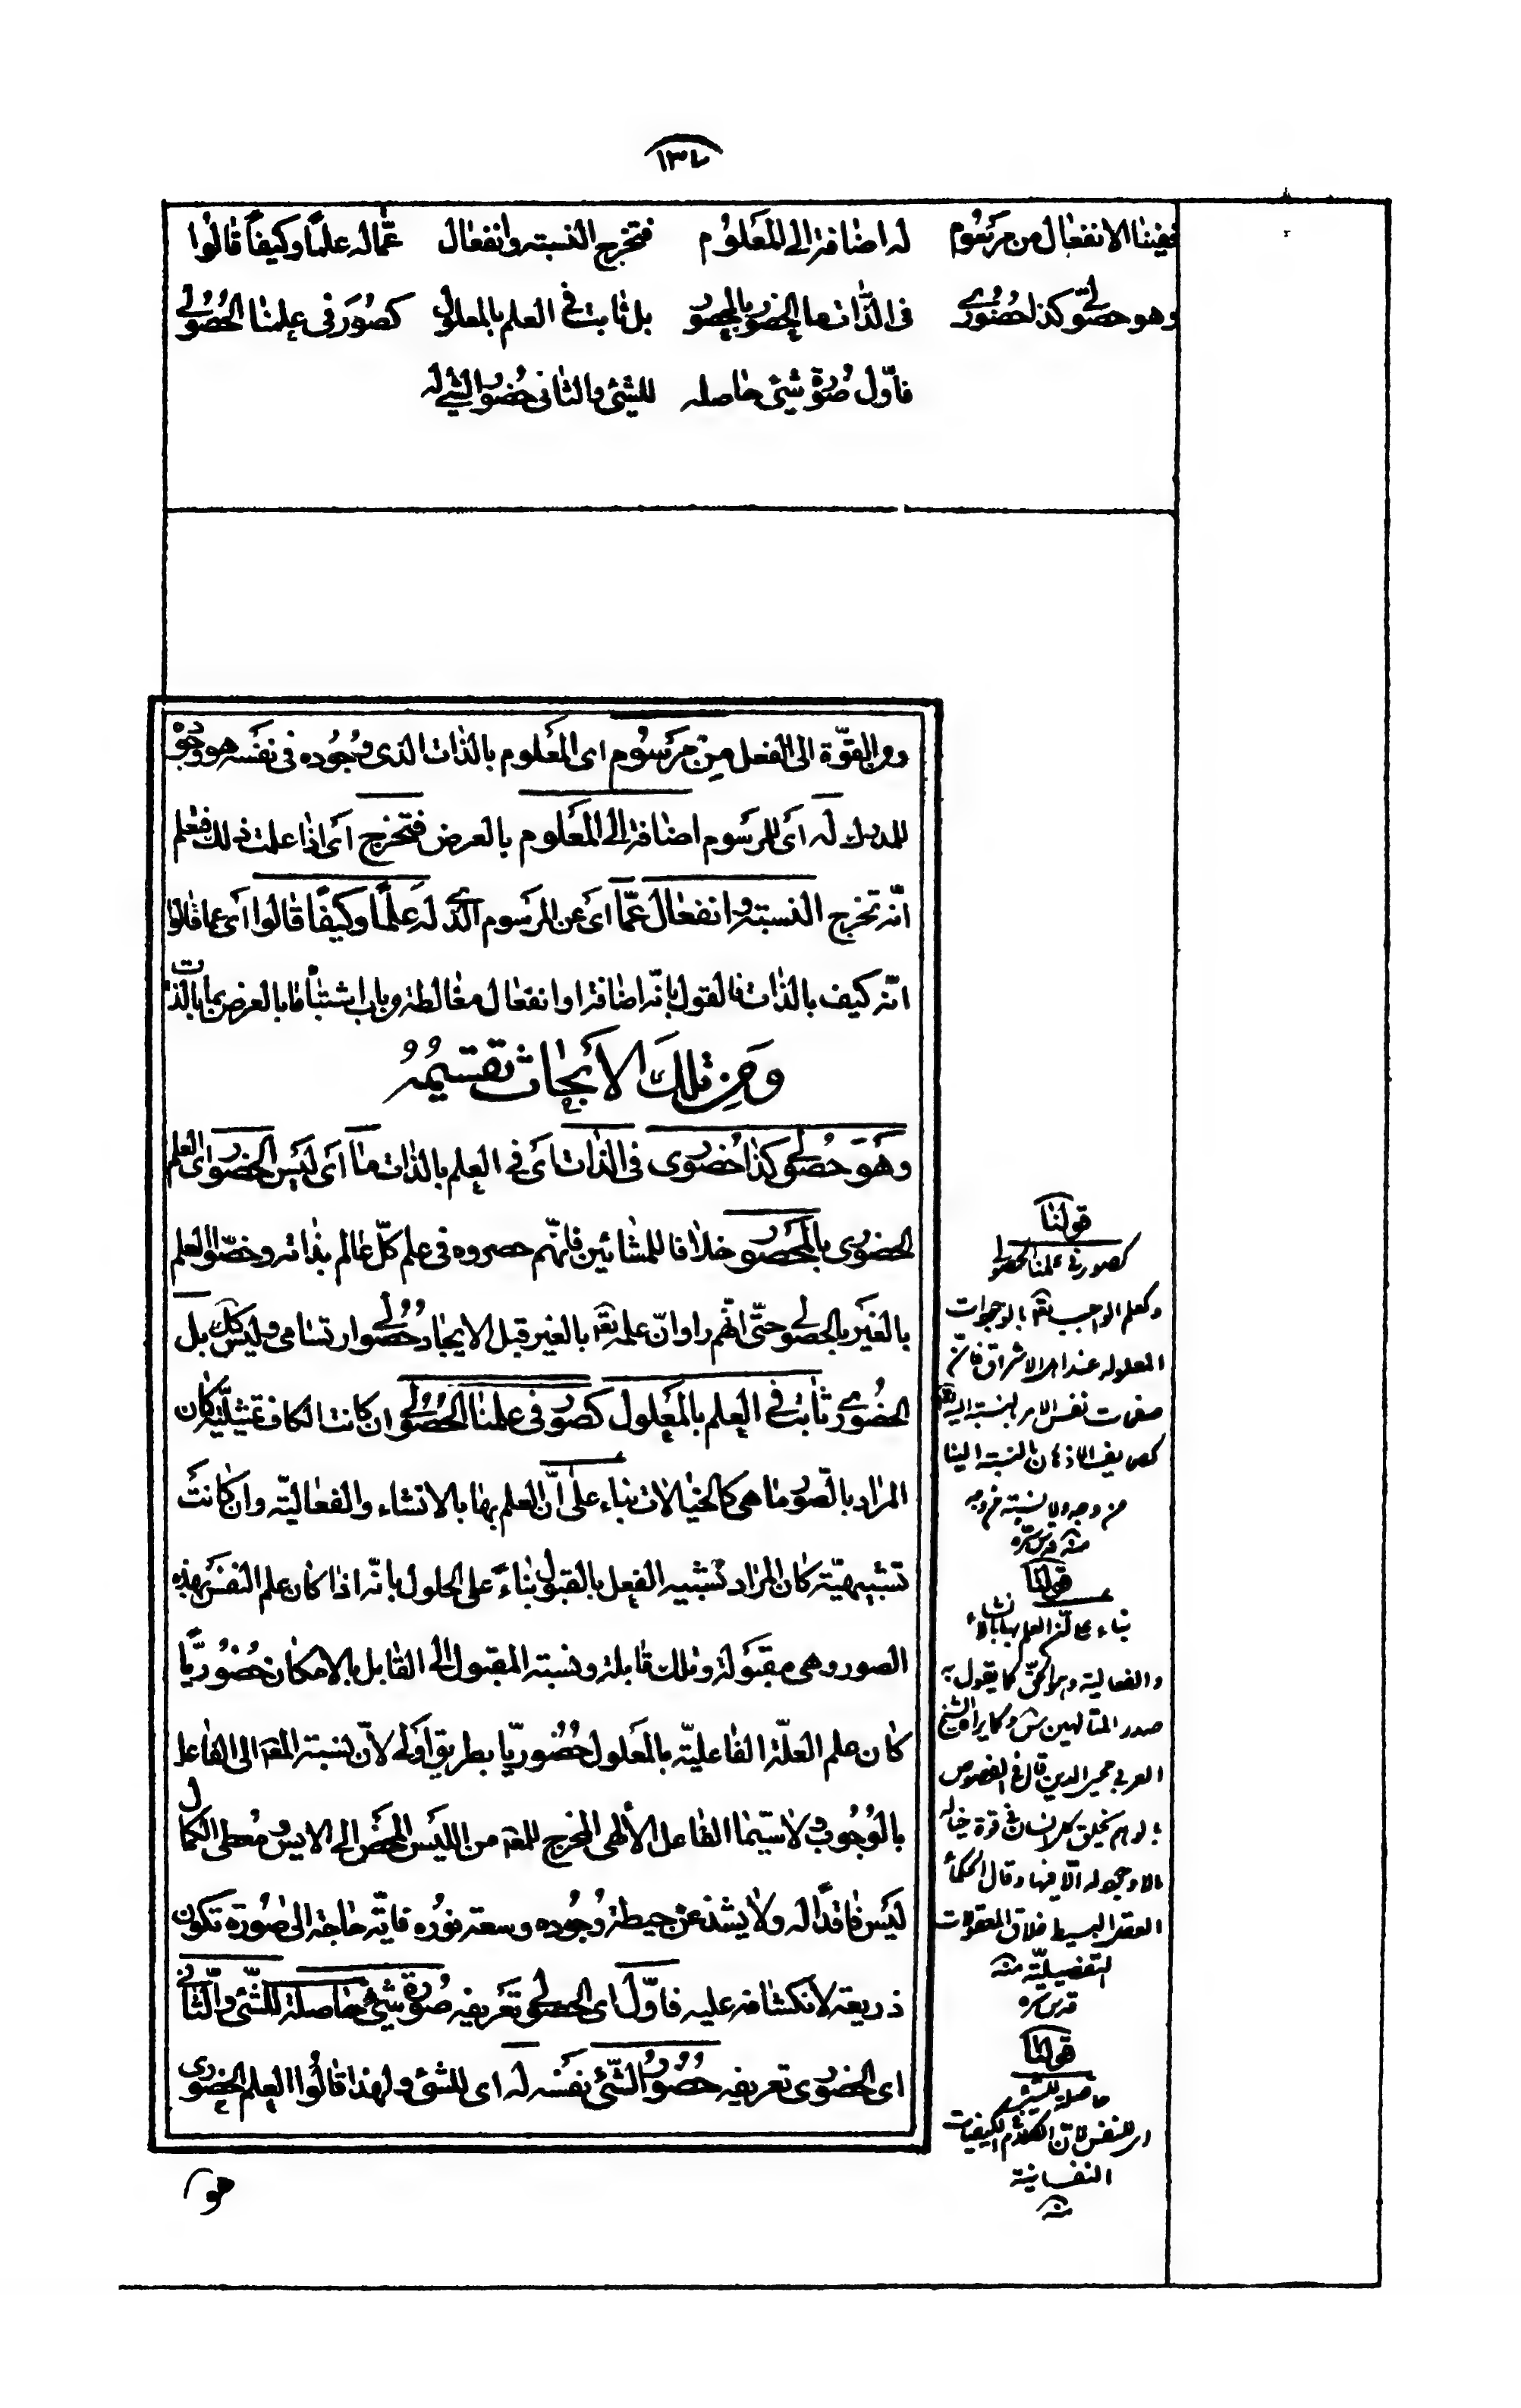 ١٣٧
ففينا الانفعال من مرسوم له اضافة الى المعلوم فتخرج النسبة وانفعال عمّا له علماً وكيفاً قالوا
وهو حصولّي كذا حضوري في الذّات ما الحضور بالمحصور بل ثابت في العلم بالمعلول كصور في علمنا الحصولي
فاوّل صورة شيئ حاصله للشيئ والثاني حضور الشيئ له
من القوّة الى الفعل من مرسوم اى المعلوم بالذات الذى وجوده في نفسه هو وجوده
للمدرك له اى للمرسوم اضافة الى المعلوم بالعرض فتخرج اى اذا علمت ذلك فتعلم
انّه تخرج النسبة وانفعال عمّا اى عن المرسوم الذى له علماً وكيفاً قالوا اى عما قالوا
انّه كيف بالذات فالقول بانّه اضافة او انفعال مغالطة من باب اشتباه ما بالعرض بما بالذات
ومن تلك الأبحاث تقسيمه
وهو حصولي كذا حضورى في الذات اى في العلم بالذات ما اى ليس الحضور اى العلم
الحضورى بالمحصور خلافا للمشائين فانّهم حصروه في علم كلّ عالم بذاته وخصّوا العلم
بالغير بالحصولي حتّى انّهم راوا انّ علمه تعالى بالغير قبل الايجاد حصولي ارتسامى وليس كك بل
الحضوري ثابت في العلم بالمعلول كصور في علمنا الحصولي ان كانت الكاف تمثيليّة كان
المراد بالصّور ما هى كالخيالات بناء على انّ العلم بها بالانشاء والفعاليّة وان كانت
تشبيهيّة كان المراد تشبيه الفعل بالقبول بناءً على الحلول بانّه اذا كان علم النفس بهذه
الصور وهى مقبولة وتلك قابلة ونسبة المقبول الى القابل بالامكان حضوريّاً
كان علم العلّة الفاعليّة بالمعلول حضوريّا بطريق اولى لانّ نسبة المعه الى الفاعل
بالوجوب ولا سيّما الفاعل الألهى المخرج للمعه من الليس المحض الى الايس ومعطى الكمال
ليس فاقداً له ولا يشذ عن حيطة وجوده وسعة نوره فايّة حاجة الى صورة تكون
ذريعة لانكشافه عليه فاوّل اى الحصولي تعريفه صورة شيئ حاصلة للشّئ والثّاني
اى الحضورى تعريفه حضور الشّئ نفسه له اى للشئ ولهذا قالوا العلم الحضورى
هو
قولنا
كصور في علمنا الحصولي
وكعلم الواجب تعالى بالوجودات
المعلولة عند اهل الاشراق فانّ
صفحات نفس الامر بالنسبة اليه تعالى
كصحايف الاذهان بالنسبة الينا
من وجه
منه قدس سره
قولنا
بناء على انّ العلم بها بالانشاء
والفعالية وهو الحقّ كما يقول به
صدر المتالهين س وكما يراه الشيخ
العربي محيي الدين قال في الفصوص
بالوهم يخلق كل انسان في قوة خياله
ما لا وجود له الّا فيها وقال الحكماء
العقل البسيط خلاق المعقولات
التفصيليّة منه
قدس سره
قولنا
حاصلة للشئ
اى للنفس لانّ من الكيفيات
النفسانية
منه